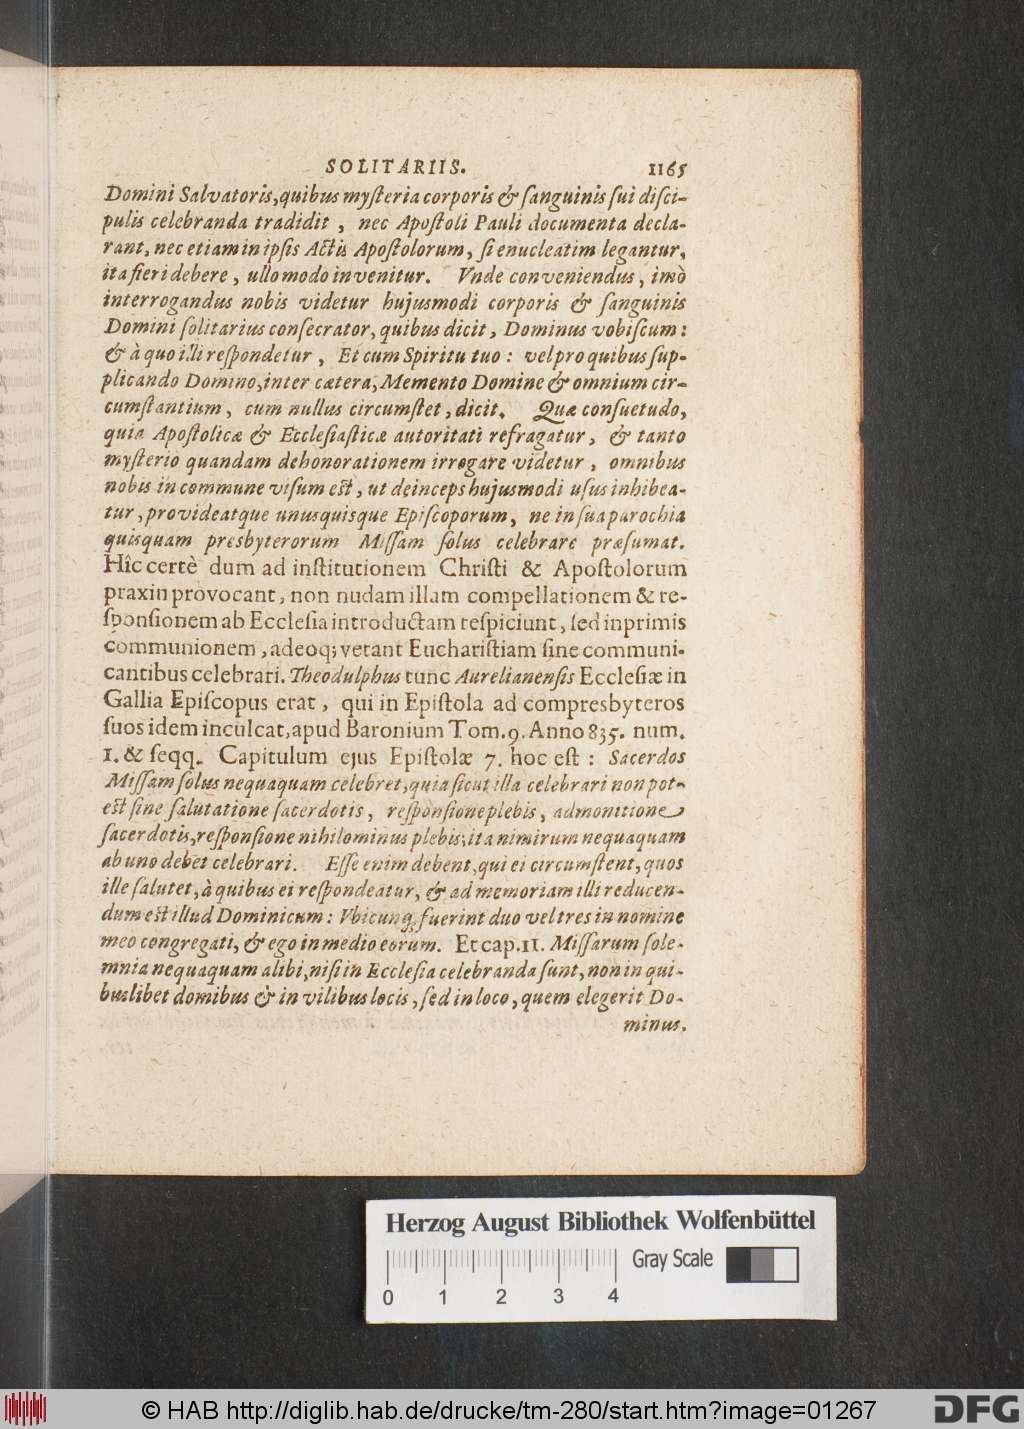 SOLITARIIS. 1165
Domini Salvatoris, quibus myſteria corporis & ſanguinis ſui diſci-
pulis celebranda tradidit, nec Apoſtoli Pauli documenta decla-
rant, nec etiam in ipſis Actis Apoſtolorum, ſi enucleatim legantur,
ita fieri debere, ullo modo invenitur. Vnde conveniendus, imò
interrogandus nobis videtur hujusmodi corporis & ſanguinis
Domini ſolitarius conſecrator, quibus dicit, Dominus vobiſcum:
& à quo illi reſpondetur, Et cum Spiritu tuo: vel pro quibus ſup-
plicando Domino, inter cætera, Memento Domine & omnium cir-
cumſtantium, cum nullus circumſtet, dicit. Quæ conſuetudo,
quia Apoſtolicæ & Eccleſiaſticæ autoritati refragatur, & tanto
myſterio quandam dehonorationem irrogare videtur, omnibus
nobis in commune viſum eſt, ut deinceps hujusmodi uſus inhibea-
tur, provideatque unusquisque Epiſcoporum, ne in ſua parochia
quisquam presbyterorum Miſſam ſolus celebrare præſumat.
Hîc certè dum ad inſtitutionem Chriſti & Apoſtolorum
praxin provocant, non nudam illam compellationem & re-
ſponſionem ab Eccleſia introductam reſpiciunt, ſed inprimis
communionem, adeoq; vetant Euchariſtiam ſine communi-
cantibus celebrari. Theodulphus tunc Aurelianenſis Eccleſiæ in
Gallia Epiſcopus erat, qui in Epiſtola ad compresbyteros
ſuos idem inculcat, apud Baronium Tom. 9. Anno 835. num.
1. & ſeqq. Capitulum ejus Epiſtolæ 7. hoc eſt: Sacerdos
Miſſam ſolus nequaquam celebret, quia ſicut illa celebrari non pot-
eſt ſine ſalutatione ſacerdotis, reſponſione plebis, admonitione
ſacerdotis, reſponſione nihilominus plebis; ita nimirum nequaquam
ab uno debet celebrari. Eſſe enim debent, qui ei circumſtent, quos
ille ſalutet, à quibus ei reſpondeatur, & ad memoriam illi reducen-
dum eſt illud Dominicum: Vbicunq; fuerint duo vel tres in nomine
meo congregati, & ego in medio eorum. Et cap. 11. Miſſarum ſole-
mnia nequaquam alibi, niſi in Eccleſia celebranda ſunt, non in qui-
buslibet domibus & in vilibus locis, ſed in loco, quem elegerit Do-
minus.
Herzog August Bibliothek Wolfenbüttel
Gray Scale
0 1 2 3 4
© HAB http://diglib.hab.de/drucke/tm-280/start.htm?image=01267
DFG